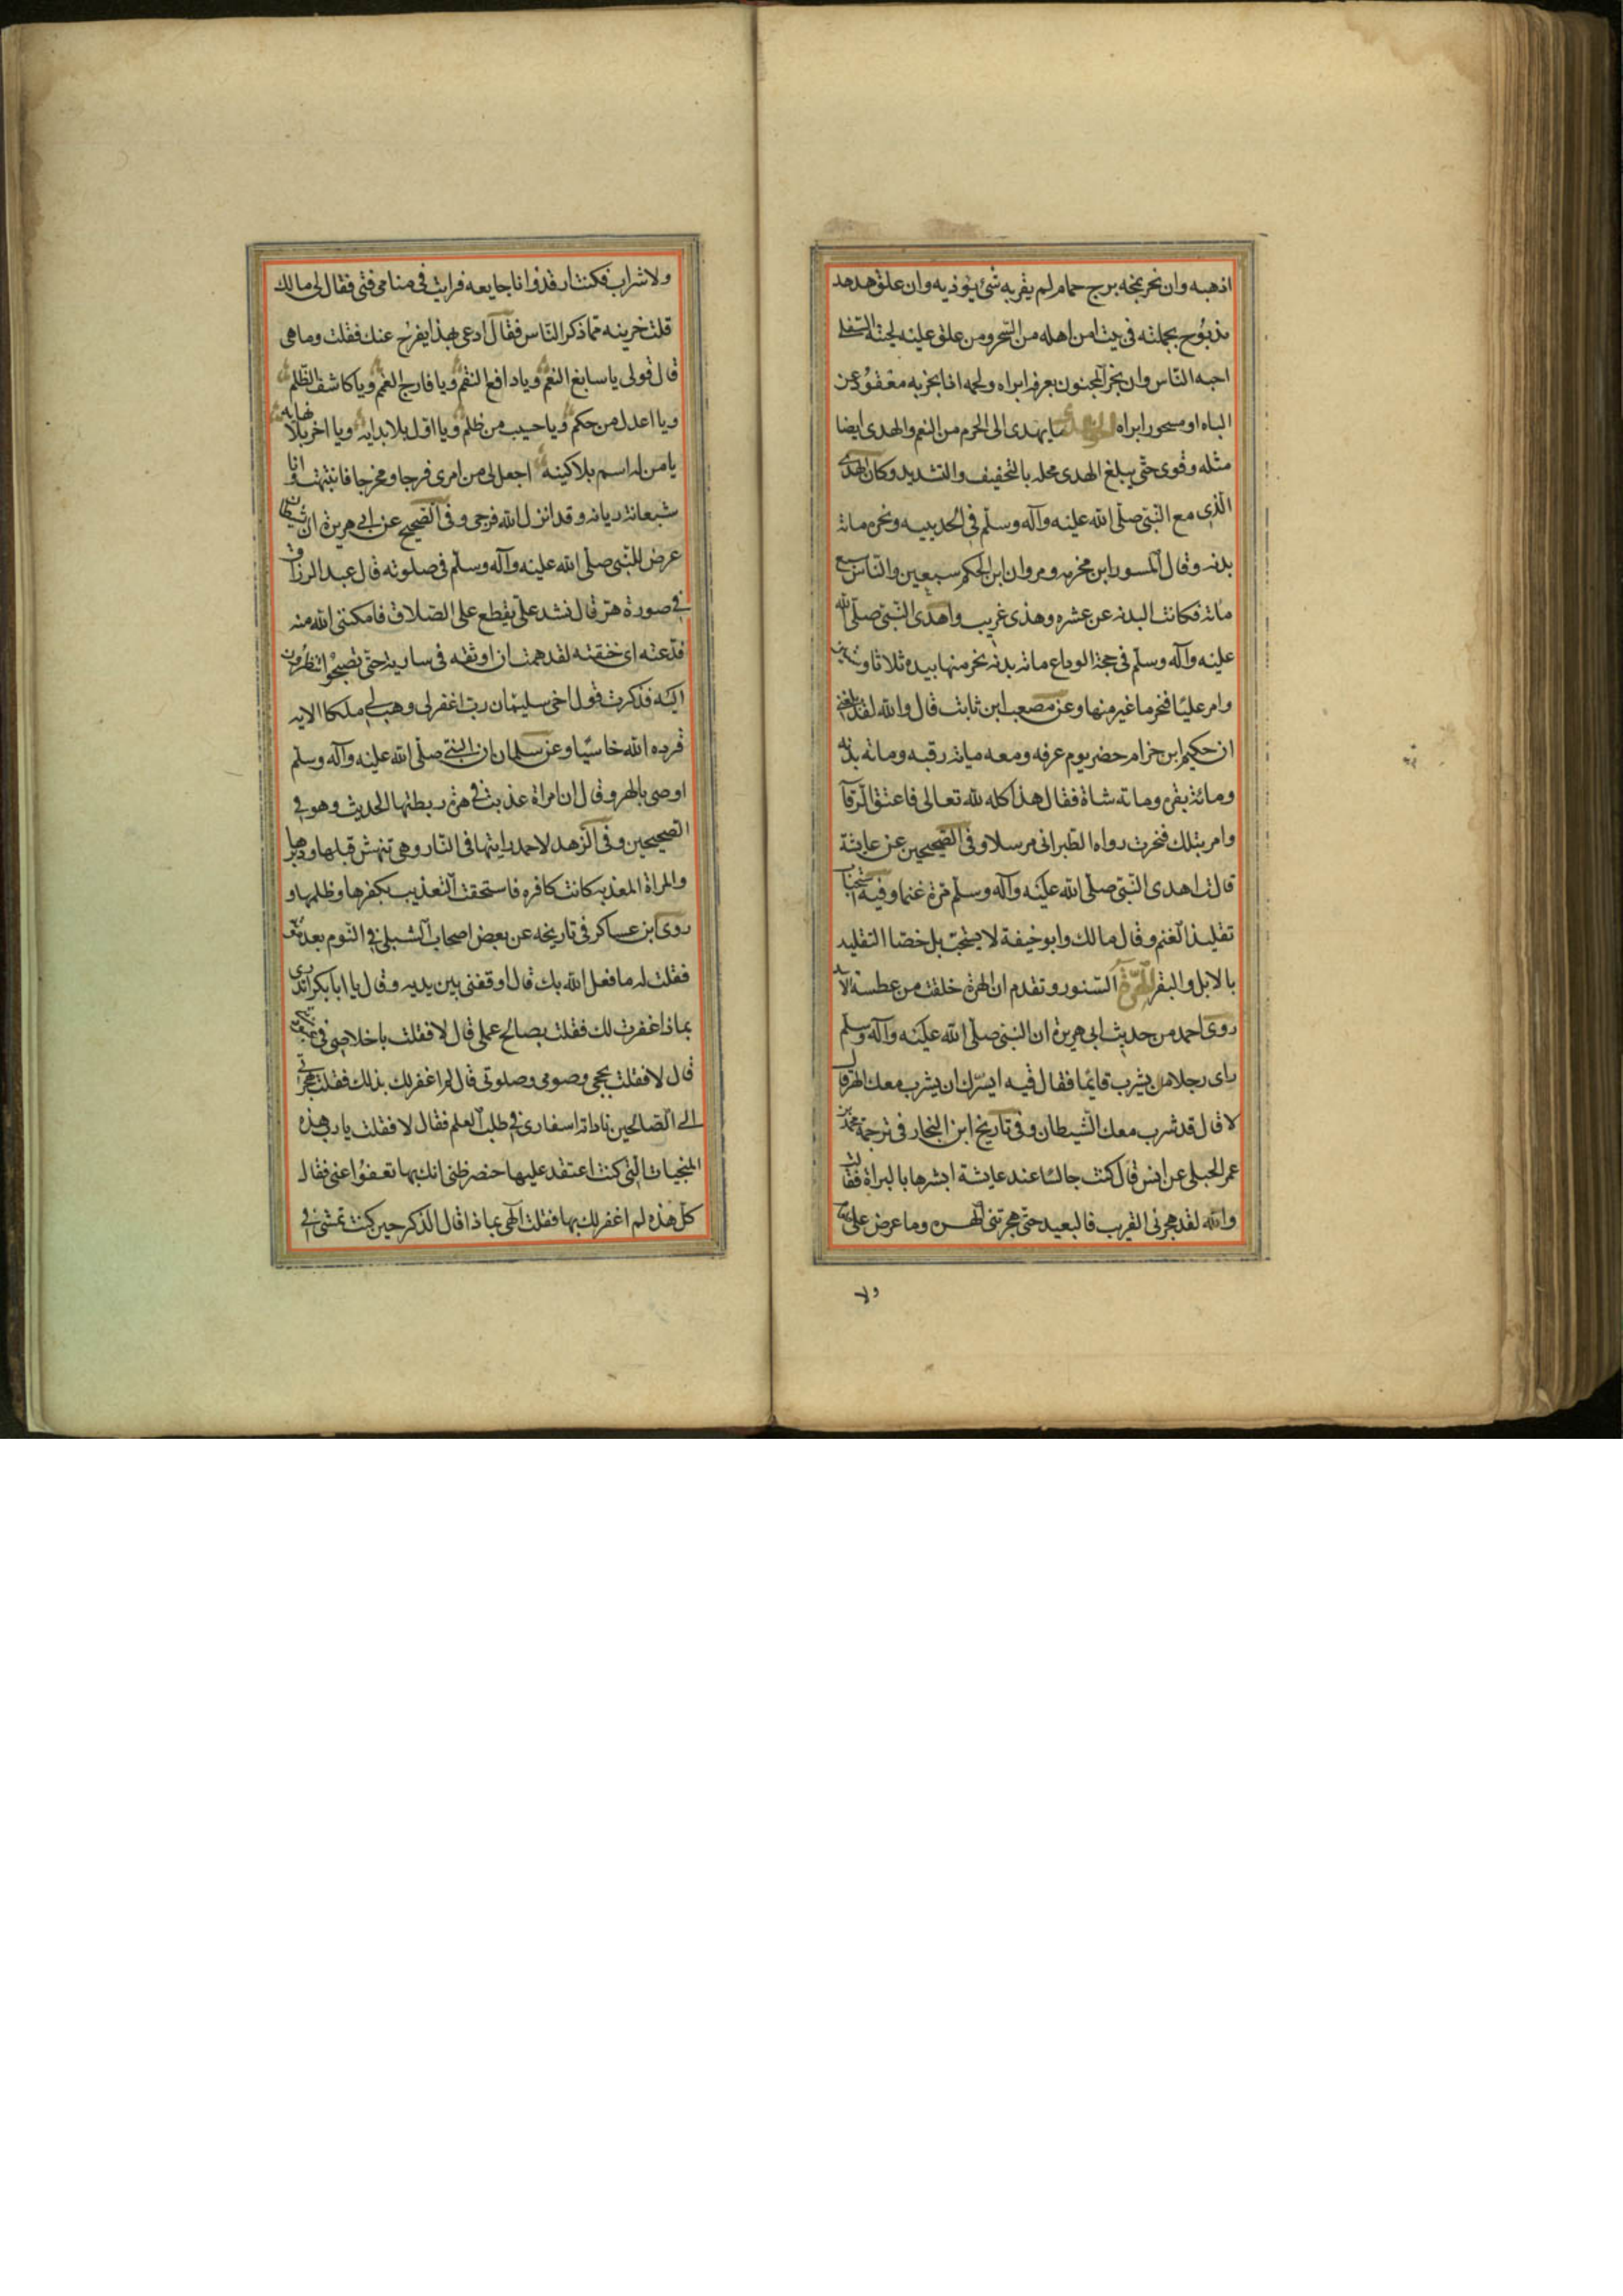 اذهبه وان بخر بمخه برج حمام لم يقربه شئ يؤذيه وان علق هدهد
مذبوح بجملته فى بيت امن اهله من السحر ومن علق عليه لحيته السفلى
احبه الناس وان بخر المجنون بعرفه ابراه ولحمه اذا بخر به معقود عن
الباه او مسحور ابراه الهدى ما يهدى الى الحرم من النعم والهدى ايضا
مثله وقوى حتى يبلغ الهدى محله بالتخفيف والتشديد وكان الهدى
الذى مع النبى صلى الله عليه وآله وسلم فى الحديبيه ونحر مائة
بدنه وقال المسور ابن مخرمه ومروان ابن الحكم سبعين والناس سبع
مائة فكانت البدنه عن عشره وهذى غريب واهدى النبى صلى الله
عليه وآله وسلم فى حجة الوداع مائة بدنه نحر منها بيده ثلاثا وستين
وامر عليا فنحر ما غبر منها وعن مصعب ابن ثابت قال والله لقد بلغنى
ان حكيم ابن حزام حضر يوم عرفه ومعه مياته رقبه ومائة بدنه
ومائة بقره ومائة شاة فقال هذا كله لله تعالى فاعتق الرقاب
وامر بتلك فنحرت رواه الطبرانى مرسلا وفى الصحيحين عن عايشة
قالت اهدى النبى صلى الله عليه وآله وسلم مرة غنما وفيه استحباب
تقليد الغنم وقال مالك وابو حنيفة لا يستحب بل خصا التقليد
بالابل والبقر الهرة السنور وتقدم ان الهرة خلقت من عطسة الاسد
روى احمد من حديث ابى هريرة ان النبى صلى الله عليه وآله وسلم
راى رجلا من يشرب قائما فقال فيه ايسرك ان يشرب معك الهر قال
لا قال قد شرب معك الشيطان وفى تاريخ ابن النجار فى ترجمة محمد بن
عمر الحبلى عن انس قال كنت جالسا عند عايشة ابشرها بالبراة فقالت
والله لقد هجرنى القريب فالبعيد حتى هجرتنى الهره وما عرض على
ولا
ولا شراب فكنت ارقد وانا جايعه فرايت فى منامى فتى فقال لى مالك
قلت حزينه مما ذكر الناس فقال ادعى بهذا يفرج عنك فقلت وما هى
قال قولى يا سابغ النعم ويا دافع النقم ويا فارج الغم ويا كاشف الظلم
ويا اعدل من حكم ويا حسيب من ظلم ويا اول بلا بدايه ويا اخر بلا نهايه
يا من له اسم بلا كنيه اجعل لى من امرى فرجا ومخرجا فانتبهت وانا
شبعانة ريانه وقد انزل الله فرجى وفى الصحيح عن ابى هريرة ان شيطان
عرض للنبى صلى الله عليه وآله وسلم فى صلوته قال عبد الرزاق
فى صورة هر قال فشد على يقطع على الصلاة فامكننى الله منه
فدعته اى خنقته لقد هممت ان اوثقه فى سارية حتى تصبحوا تنظرون
اليه فذكرت قول اخى سليمان رب اغفر لى وهب لى ملكا الايه
فرده الله خاسيا وعن سلمان ان النبى صلى الله عليه وآله وسلم
اوصى بالهر وقال ان امراة عذبت فى هرة ربطتها الحديث وهو فى
الصحيحين وفى الزهد لاحمد رايتها فى النار وهى تنهش قبلها ودبرها
والمراة المعذبه كانت كافره فاستحقت التعذيب بكفرها وظلمها و
روى ابن عساكر فى تاريخه عن بعض اصحاب الشبلى فى النوم بعد موته
فقلت له ما فعل الله بك قال اوقفنى بين يديه وقال يا ابا بكر اتدرى
بماذا غفرت لك فقلت بصالح عملى قال لا فقلت باخلاصى فى
قال لا فقلت بحجى وصومى وصلوتى قال لم اغفر لك بذلك فقلت بهجرتى
الى الصالحين اسفارى فى طلب العلم فقال لا فقلت يا رب هذه
المنجيات التى كنت اعتقد عليها حضر ظنى انك بها تعفوا عنى فقال
كل هذه لم اغفر لك بها فقلت الهى بماذا قال اتذكر حين كنت تمشى فى